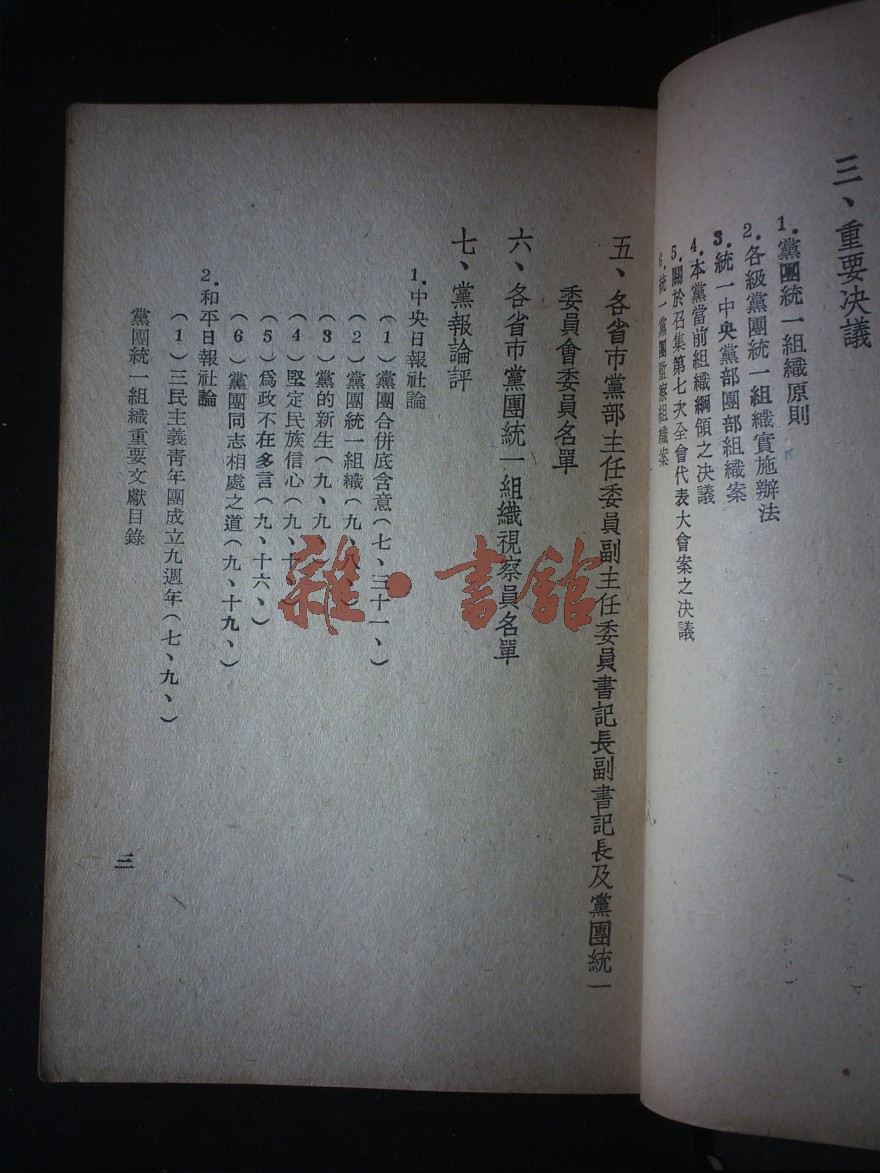 三、重要决議
1.黨團統一組織原則
2.各級黨團統一組織實施辦法
3.統一中央黨部團部組織案
4.本黨當前組織綱領之决議
5.關於召集第七次全會代表大會案之决議
6.統一黨團監察組織案
五、各省市黨部主任委員副主任委員書記長副書記長及黨團統一
委員會委員名單
六、各省市黨團統一組織視察員名單
七、黨報論評
1.中央日報社論
(1)黨團合併底含意(七、三十一、)
(2)黨團統一組織(九、八、)
(3)黨的新生(九、九、)
(4)堅定民族信心(九、十
(5)爲政不在多言(九、十六、)
(6)黨團同志相處之道(九、十九、)
2.和平日報社論
(1)三民主義青年團成立九週年(七、九、)
黨團統一組織重要文獻目錄
三
雜·書館